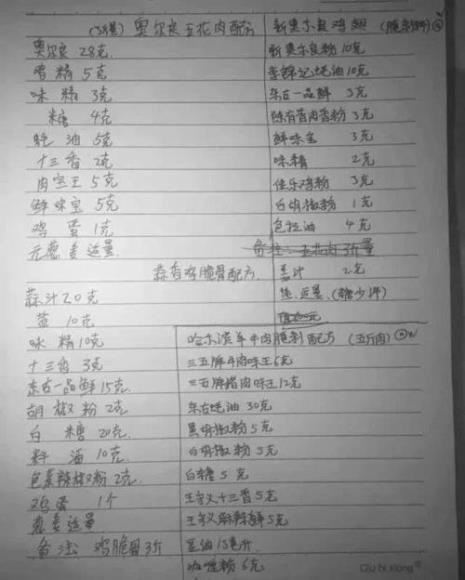 (3斤量) 奥尔良五花肉配方
奥尔良 28克
香精 5克
味精 3克
糖 4克
蚝油 5克
十三香 2克
肉宝王 5克
鲜味宝 5克
鸡蛋 1克
元葱姜适量
新奥尔良鸡翅 (腌制料)
新奥尔良粉 10克
李锦记蚝油 10克
东古一品鲜 3克
味香粉 3克
鲜味宝 3克
味精 2克
佳乐鸡粉 3克
白胡椒粉 1克
色拉油 4克
备注:五花肉3斤量
姜汁 2克
适量 (糖少许)
蒜香鸡脆骨配方
蒜汁 20克
10克
味精 10克
十三香 3克
东古一品鲜 15克
胡椒粉 2克
白糖 20克
料酒 10克
辣椒粉 2克
鸡蛋 1个
葱姜适量
备注 鸡脆骨3斤
哈尔滨羊牛肉腌制配方 (五斤肉)
三五牌牛肉味王 6克
三五牌猪肉味王 12克
东古蚝油 30克
黑胡椒粉 5克
白胡椒粉 5克
白糖 5克
王守义十三香 5克
王守义麻辣鲜 5克
豆油 15毫升
咖喱粉 6克
Qiu bi xiong